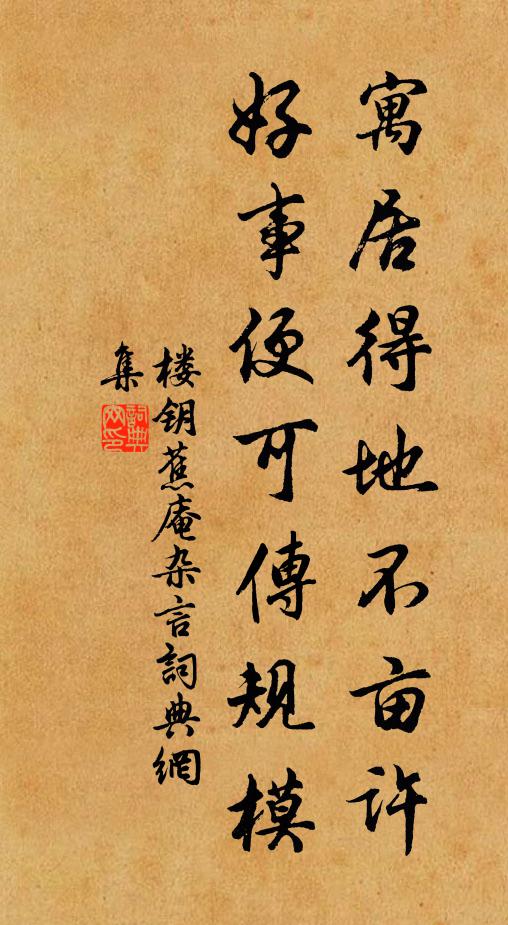 寓居得地不亩许
好事便可傳规模
楼钥蕉庵杂言詞典網
集
詞典網印